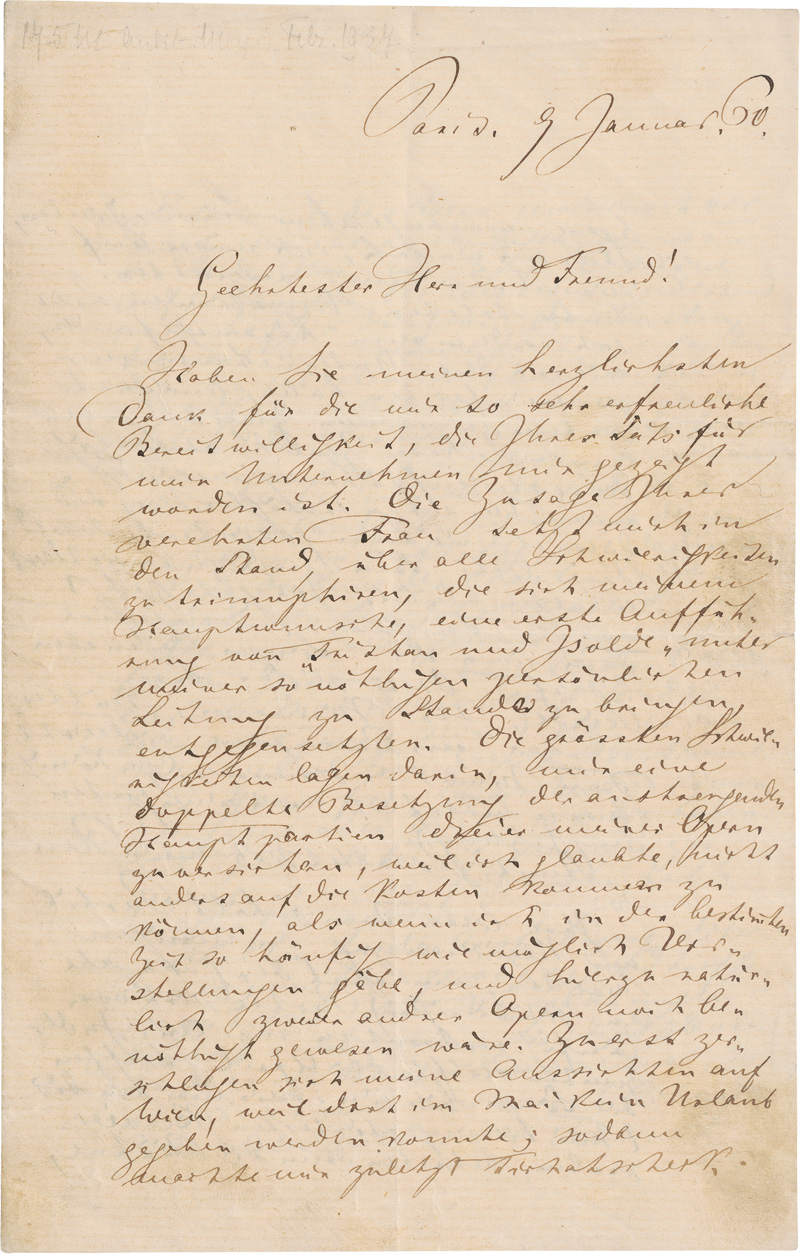 Febr. 1937
Paris. 9 Januar. 60.
Geehrtester Herr und Freund!
Haben Sie meinen herzlichsten
Dank für die mir so sehr erfreuliche
Bereitwilligkeit, die Ihrer Seits für
mein Unternehmen mir gezeigt
worden ist. Die Zusage Ihrer
verehrten Frau setzt mich in
den Stand, über alle Schwierigkeiten
zu triumphiren, die sich meinem
Hauptwunsche, eine erste Auffüh-
rung von "Tristan und Isolde" unter
meiner so nöthigen persönlichen
Leitung zu Stande zu bringen,
entgegensetzten. Die grössten Schwie-
rigkeiten lagen darin, mir eine
doppelte Besetzung der anstrengenden
Hauptpartien dreier meiner Opern
zu versichern, weil ich glaubte, nicht
anders auf die Kosten kommen zu
können, als wenn ich in der bestimmten
Zeit so häufig wie möglich Vor-
stellungen gäbe, und hierzu natür-
lich zweier andrer Opern noch be-
nöthigt gewesen wäre. Zuerst zer-
schlugen sich meine Aussichten auf
Wien, weil dort im Mai kein Urlaub
gegeben werden konnte; sodann
machte mir zuletzt Tichatscheck.